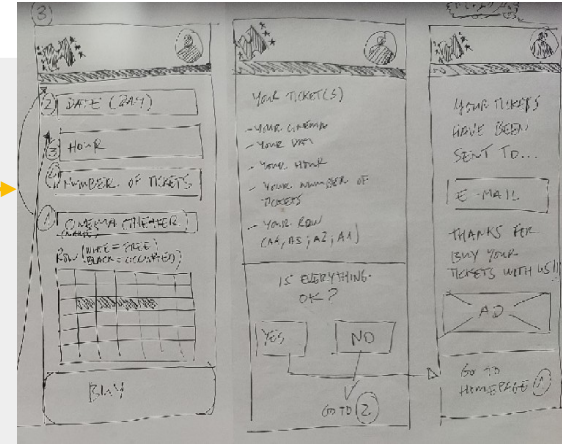 3
2 DATE (DAY)
3 HOUR
4 NUMBER OF TICKETS
1 CINEMA (THEATER)
ROW (WHITE = FREE
BLACK = OCCUPIED)
BUY
YOUR TICKET(S)
- YOUR CINEMA
- YOUR DAY
- YOUR HOUR
- YOUR NUMBER OF
TICKETS
- YOUR ROW
IS EVERYTHING
OK?
YES
NO
GO TO 2
YOUR TICKETS
HAVE BEEN
SENT TO...
E-MAIL
THANKS FOR
BUY YOUR
TICKETS WITH US!!
AD
GO TO
HOMEPAGE 1